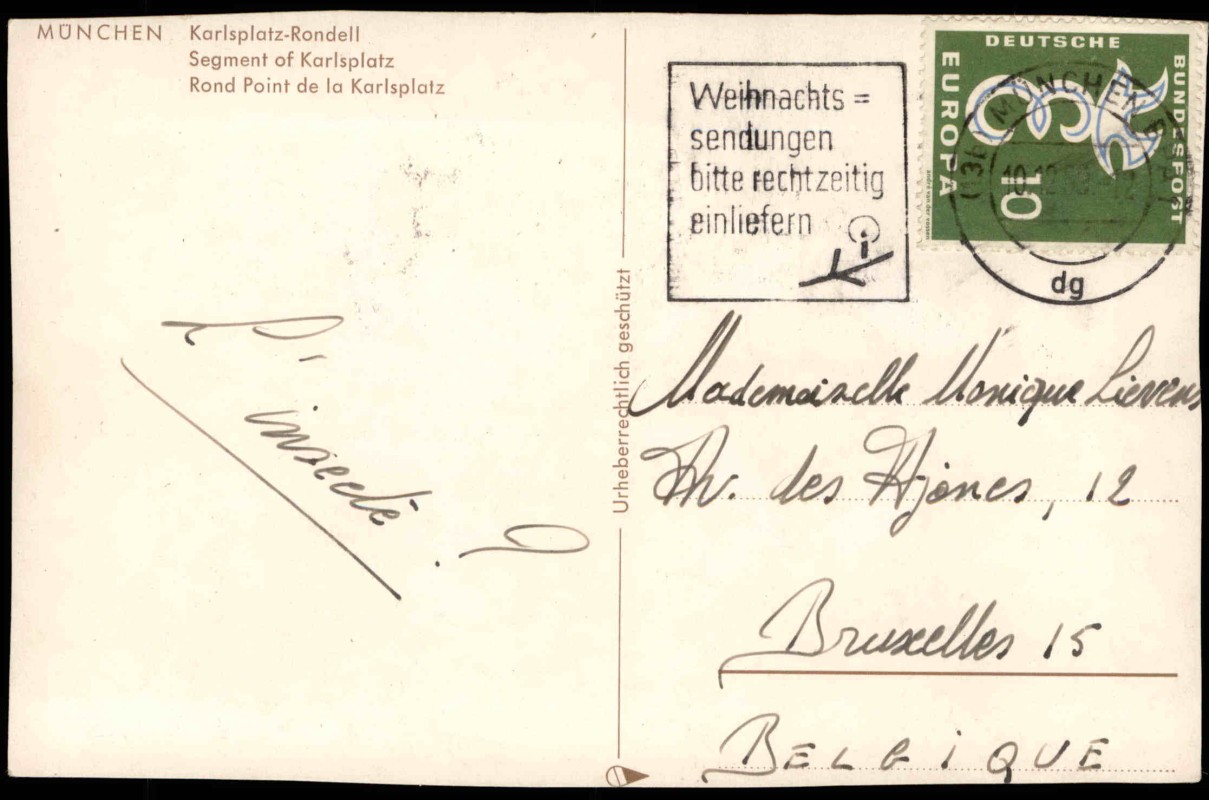 MÜNCHEN Karlsplatz-Rondell
Segment of Karlsplatz
Rond Point de la Karlsplatz
Weihnachts=
sendungen
bitte rechtzeitig
einliefern
DEUTSCHE
BUNDESPOST
EUROPA
10
MÜNCHEN
dg
Urheberrechtlich geschützt
L'insecte
Mademoiselle Monique Lievens
des 12
Bruxelles 15
BELGIQUE